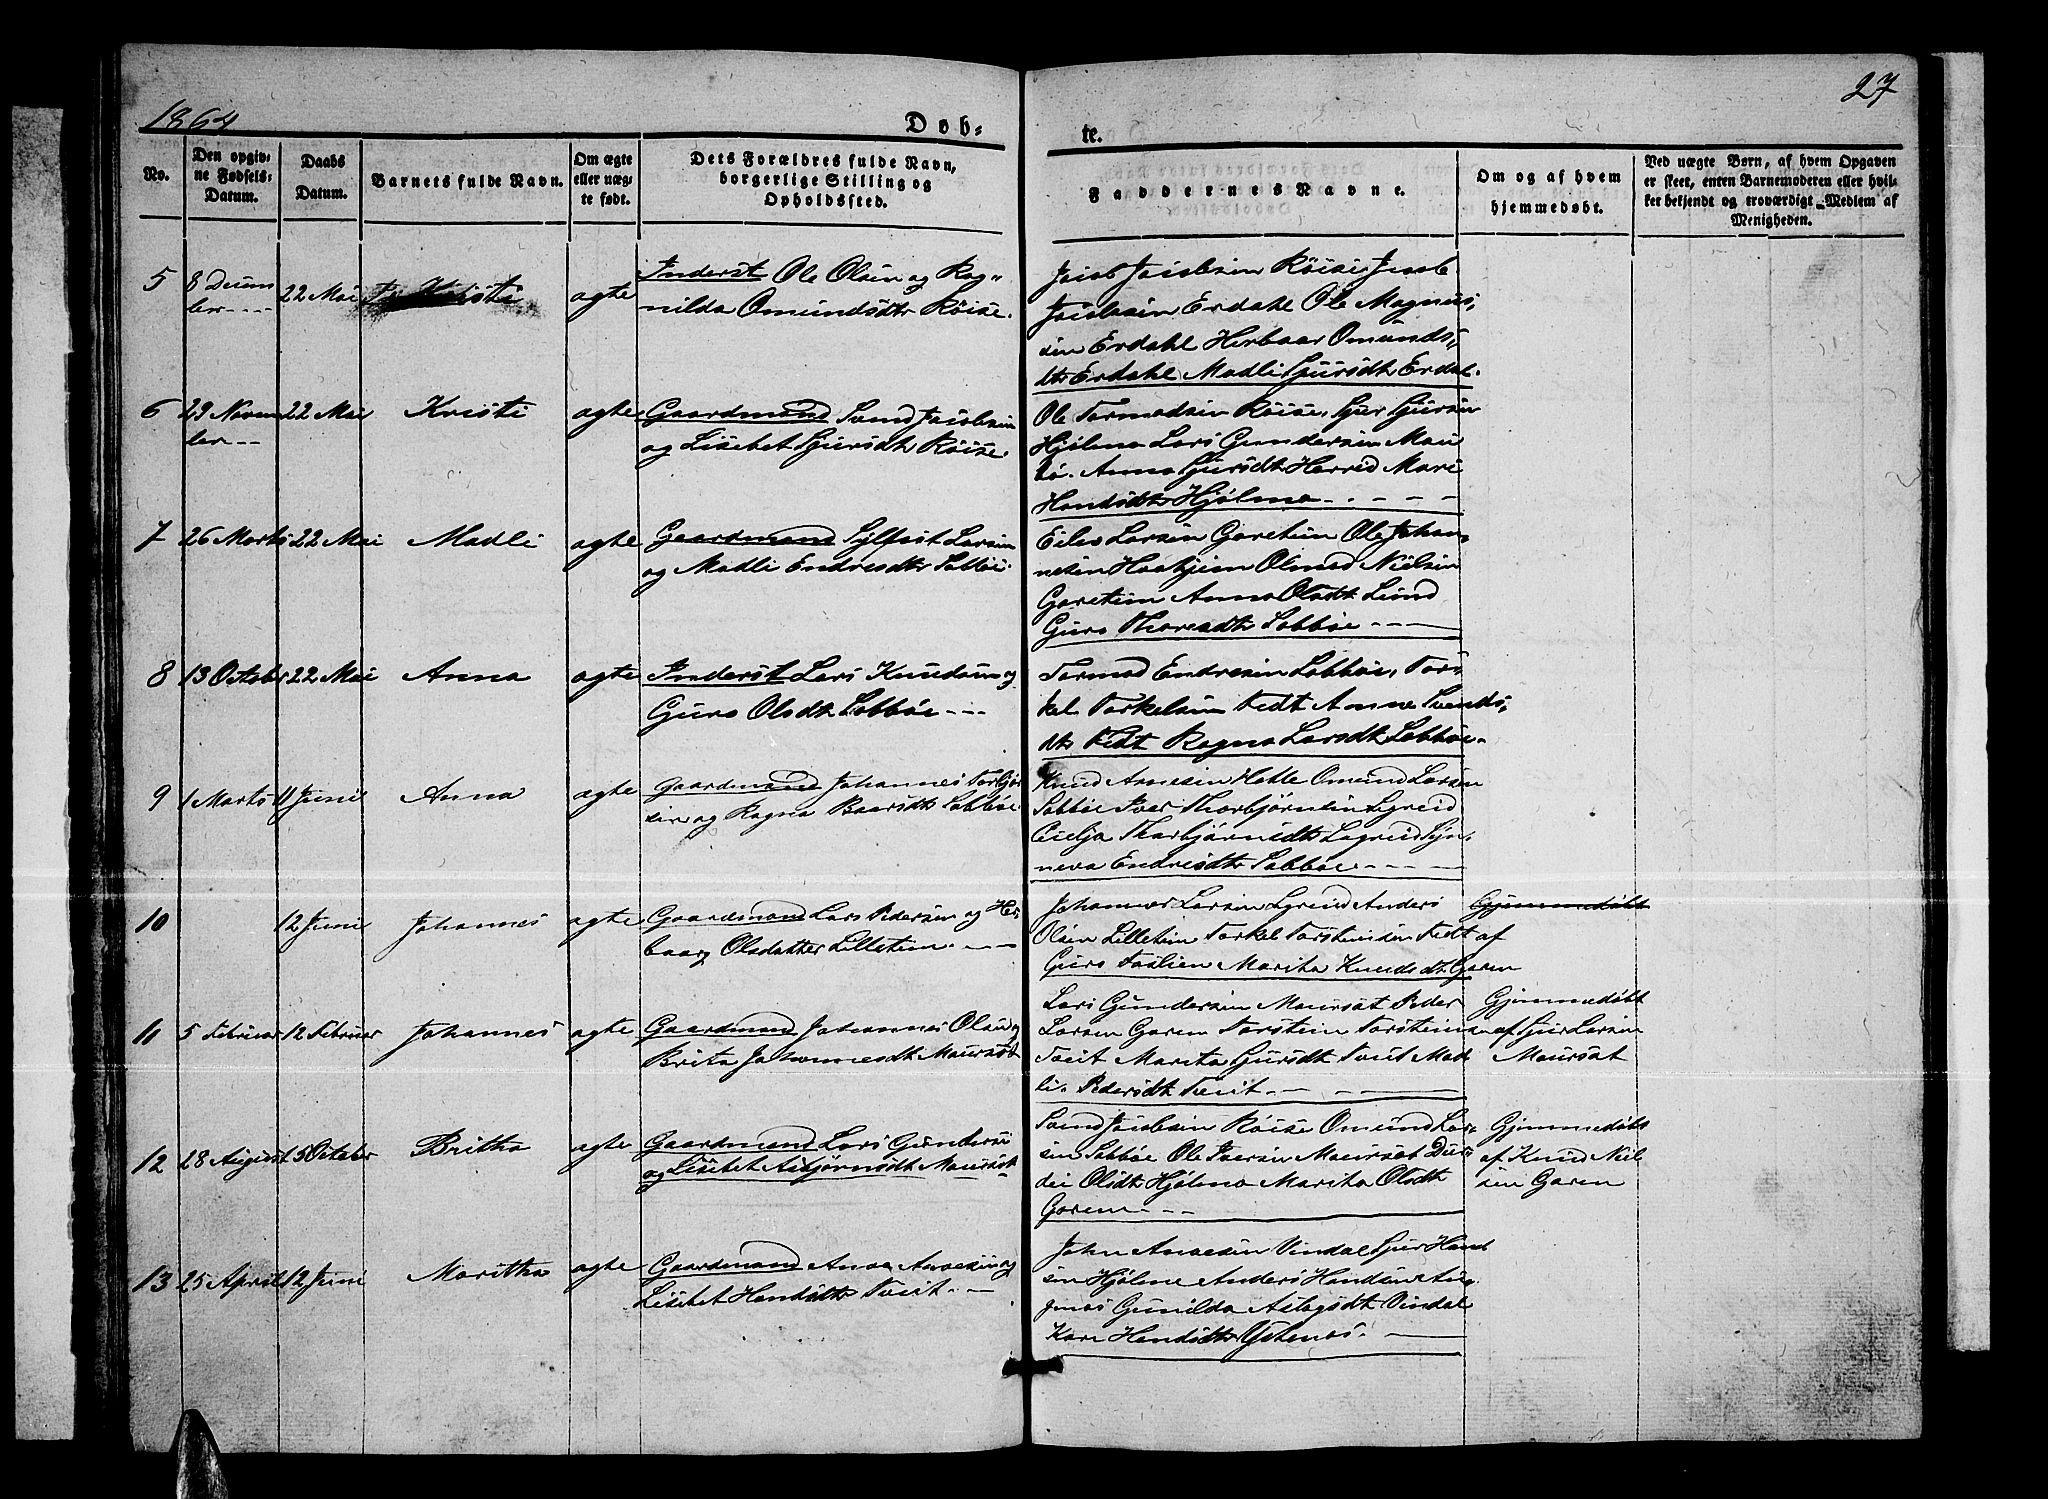 1864
27
Døb-
te.
No.
Den opgiv-
ne Fødsels-
Datum.
Daabs
Datum.
Barnets fulde Navn.
Om ægte
eller uæg-
te født.
Dets Forældres fulde Navn,
borgerlige Stilling og
Opholdssted.
Faddernes Navne.
Om og af hvem
hjemmedøbt.
Ved uægte Børn, af hvem Opgaven
er skeet, enten Barnemoderen eller hvil-
ket bekjendt og troværdigt Medlem af
Menigheden.
5
8 Decem
ber
22 Mai
Kristi
agte
Inderst Ole Olsen og Rag-
nilda Omundsdtr Röise.
Jacob Jacobsen Röise Jacob
Jacobsen Erdahl Ole Magnus,
sen Erdahl Herbaar Omunds,
dtr Erdahl Madli Sjursdt Erdal.
6
29 Novem
ber
22 Mai
Kristi
agte
Gaardmand Svend Jacobsen
og Lisebet Sjursdt Röise
Ole Tormodsen Röise, Sjur Sjursen
Hjölmo Lars Gundersen Mau
Anna Sjursdt Herreid Mari
Hansdtr Hjölmo
7
26 Marts
22 Mai
Madli
agte
Gaardmand Sylfest Larsen
og Madli Endresdtr Sæbböe.
Eilev Larsen Garetun Ole Johan,
nesen Haakjeim Olmod Nielsen
Garetun Anna Olsdt Lund
Guro Thoresdtr Sæbböe
8
13 October
22 Mai
Anna
agte
Inderst Lars Knudsen og
Guro Olsdt Sæbböe
Tormod Endresen Sæbböe, Tors
kel Torkelsen Fedt Anne Svends,
dtr Fedt Ragna Larsdt Sæbböe.
9
1 Marts
11 Juni
Anna
agte
Gaardmand Johannes Torbjör
sen og Ragna Baarsdtr Sæbböe
Knud Arnesen Hotle Omund Larsen
Sæbböe Iver Thorbjörnsen Legreid
Cicelja Thorbjörnsdtr Legreid Syn,
neva Endresdtr Sæbböe
10
12 Juni
Johannes
agte
Gaardmand Lars Pedersen og Her,
baarg Olsdatter Lilletun
Johannes Larsen Lgreid Anders
Olsen Lilletun Torkel Torsteinsen Fedt
Guro Marita Knudsdt Garen
Gjemmedöbt
af
11
5 Februar
12 Februar
Johannes
agte
Gaardmand Johannes Olsen og
Brita Johannesdt Maursæt
Lars Gundersen Maursæt Peder
Larsen Garen Torstein Torsteinsen
Tveit Marita Sjursdt Tveit Mad
li Pedersdt Tveit
Gjemmedöbt
af Sjur Larsen
Maursæt
12
28 August
5 October
Britha
agte
Gaardmand Lars Gundersen
og Lisebet Asbjörnsdt Maursæt
Svend Jacobsen Röise Omund Lar-
sen Sæbböe Ole Iversen Maursæt Dur,
dei Olsdtr Hjölmo Marita Olsdt
Garen
Gjemmedöbt
af Knud Niel
sen Garen
13
25 April
12 Juni
Maritha
agte
Gaardmand Anve Anvesen og
Lisebet Hansdtr Tveit
John Anvesen Vindal Sjur Hans
sen Hjölmo Anders Hansen
Gunilda Aslagsdt Vindal
Kari Hansdtr